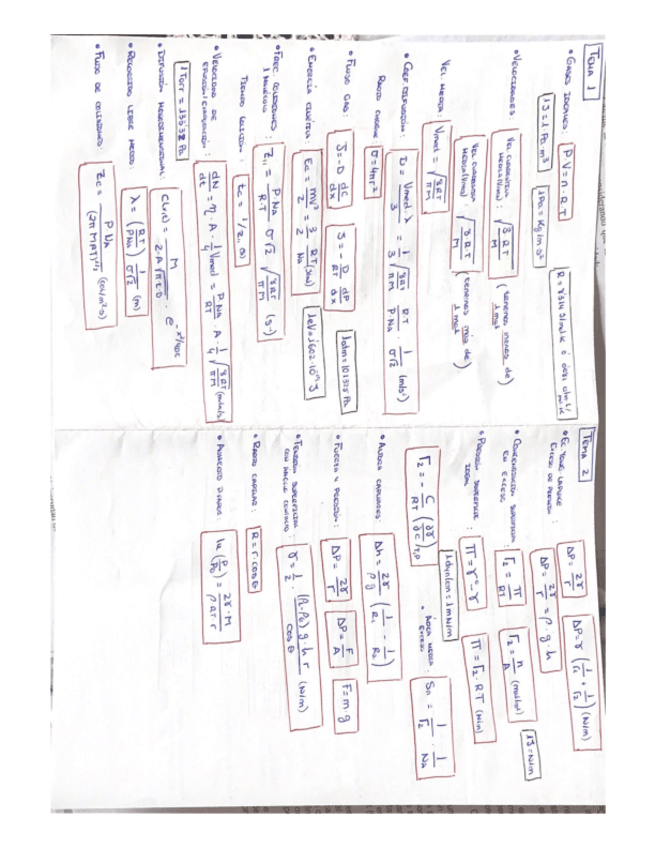 TEMA 1
• GASES IDEALES: P·V = n·R·T
R = 8'314 J/mol·K ó 0'082 atm·L/mol·K
1J = 1 Pa·m³
1Pa = Kg/m·s²
• VELOCIDADES:
VEL CUADRÁTICA MEDIA (Vrms): √(3·R·T/M) (tenemos menos de 1 mol)
VEL CUADRÁTICA MEDIA (Vrms): √(3·R·T/M) (tenemos más de 1 mol)
VEL MEDIA: Vmed = √(8RT/πM)
• COEF DIFUSIÓN: D = Vmed·λ/3 = 1/3 √(8RT/πM) · RT/(P·NA) · 1/(σ√2) (m²/s)
RADIO CHOQUE: σ = 4πr²
• FLUJO GAS: J = -D dC/dx
J = - D/RT dP/dx
1 atm = 101325 Pa
• ENERGÍA CINÉTICA: Ec = mv²/2 = 3/2 RT/NA (J)
1eV = 1'602·10⁻¹⁹ J
• FREC. COLISIONES 1 MOLÉCULA: Z₁₁ = P·NA/RT σ√2 √(8RT/πM) (s⁻¹)
TIEMPO COLISIÓN: tc = 1/Z₁₁ (s)
• VELOCIDAD DE EFUSIÓN/EMANACIÓN: dN/dt = η·A·1/4 Vmed = P·NA/RT · A · 1/4 √(8RT/πM)
1 Torr = 133'32 Pa
• DIFUSIÓN MONODIMENSIONAL: C(x,t) = M/(2·A√πtD) · e^(-x²/4Dt)
• RECORRIDO LIBRE MEDIO: λ = (RT/P·NA) 1/(σ√2) (m)
• FLUJO DE COLISIONES: Zc = P·NA/(2π MRT)^(1/2)
TEMA 2
• EC YOUNG LAPLACE EXCESO DE PRESIÓN: ΔP = 2γ/r
ΔP = γ (1/r₁ + 1/r₂) (N/m)
ΔP = 2γ/r = ρ·g·h
• CONCENTRACIÓN SUPERFICIAL EN EXCESO: Γ₂ = π/RT
Γ₂ = n/A (mol/m²)
1J = N·m
• PRESIÓN SUPERFICIE: π = γ° - γ
π = Γ₂·RT (N/m)
1 dyn/cm = 1 mN/m
Γ₂ = - C/RT (∂γ/∂C)T,P
• ÁREA MEDIA EXCESO: Sn = 1/Γ₂ · 1/NA
• ALTURA CAPILARES: Δh = 2γ/ρg (1/R₁ - 1/R₂)
• FUERZA Y PRESIÓN: ΔP = 2γ/r
ΔP = F/A
F = m·g
• TENSIÓN SUPERFICIAL CON ÁNGULO CONTACTO: γ = 1/2 · (ρL-ρG) g·h·r/cosθ (N/m)
• RADIO CAPILAR: R = r·cosθ
ln (P/P₀) = 2γ·M/ρRT r